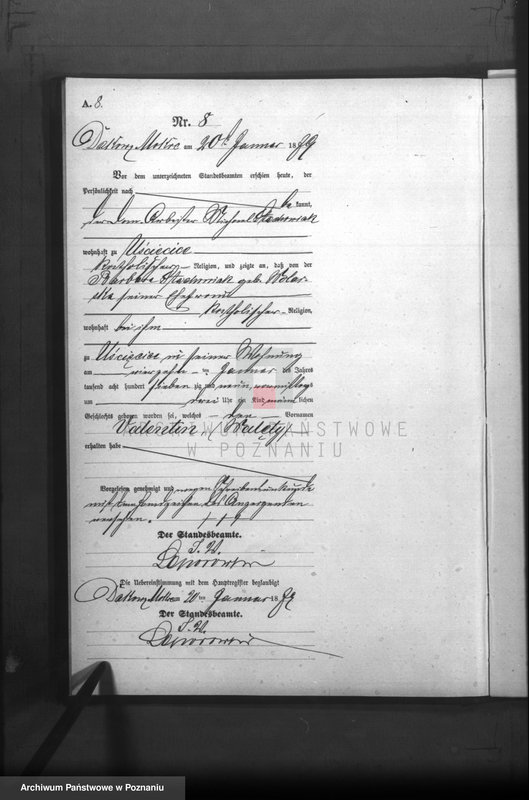 A. 8.
Nr. 8
Dakowy Mokre am 20ten Januar 1879
Vor dem unterzeichneten Standesbeamten erschien heute, der
Persönlichkeit nach
be kannt,
der Dom. Arbeiter Michael Stachowiak
wohnhaft zu Uścięcice
katholischer Religion, und zeigte an, daß von der
Barbara Stachowiak geb.
seiner Ehefrau
katholischer Religion,
wohnhaft bei ihm
zu Uścięcice in seiner Wohnung
am vierzehnten Januar des Jahres
tausend acht hundert sieben zig und neun, vormittags
um drei Uhr ein Kind männlichen
Geschlechts geboren worden sei, welches den Vornamen
Valentin, (Walęty)
erhalten habe
Vorgelesen, genehmigt und wegen Schreibensunkunde
mit dem Handzeichen des Anzeigenden
versehen. + + +
Der Standesbeamte.
Die Uebereinstimmung mit dem Hauptregister beglaubigt
Dakowy Mokre 20ten Januar 1879
Der Standesbeamte.
ARCHIWUM PAŃSTWOWE
W POZNANIU
Archiwum Państwowe w Poznaniu